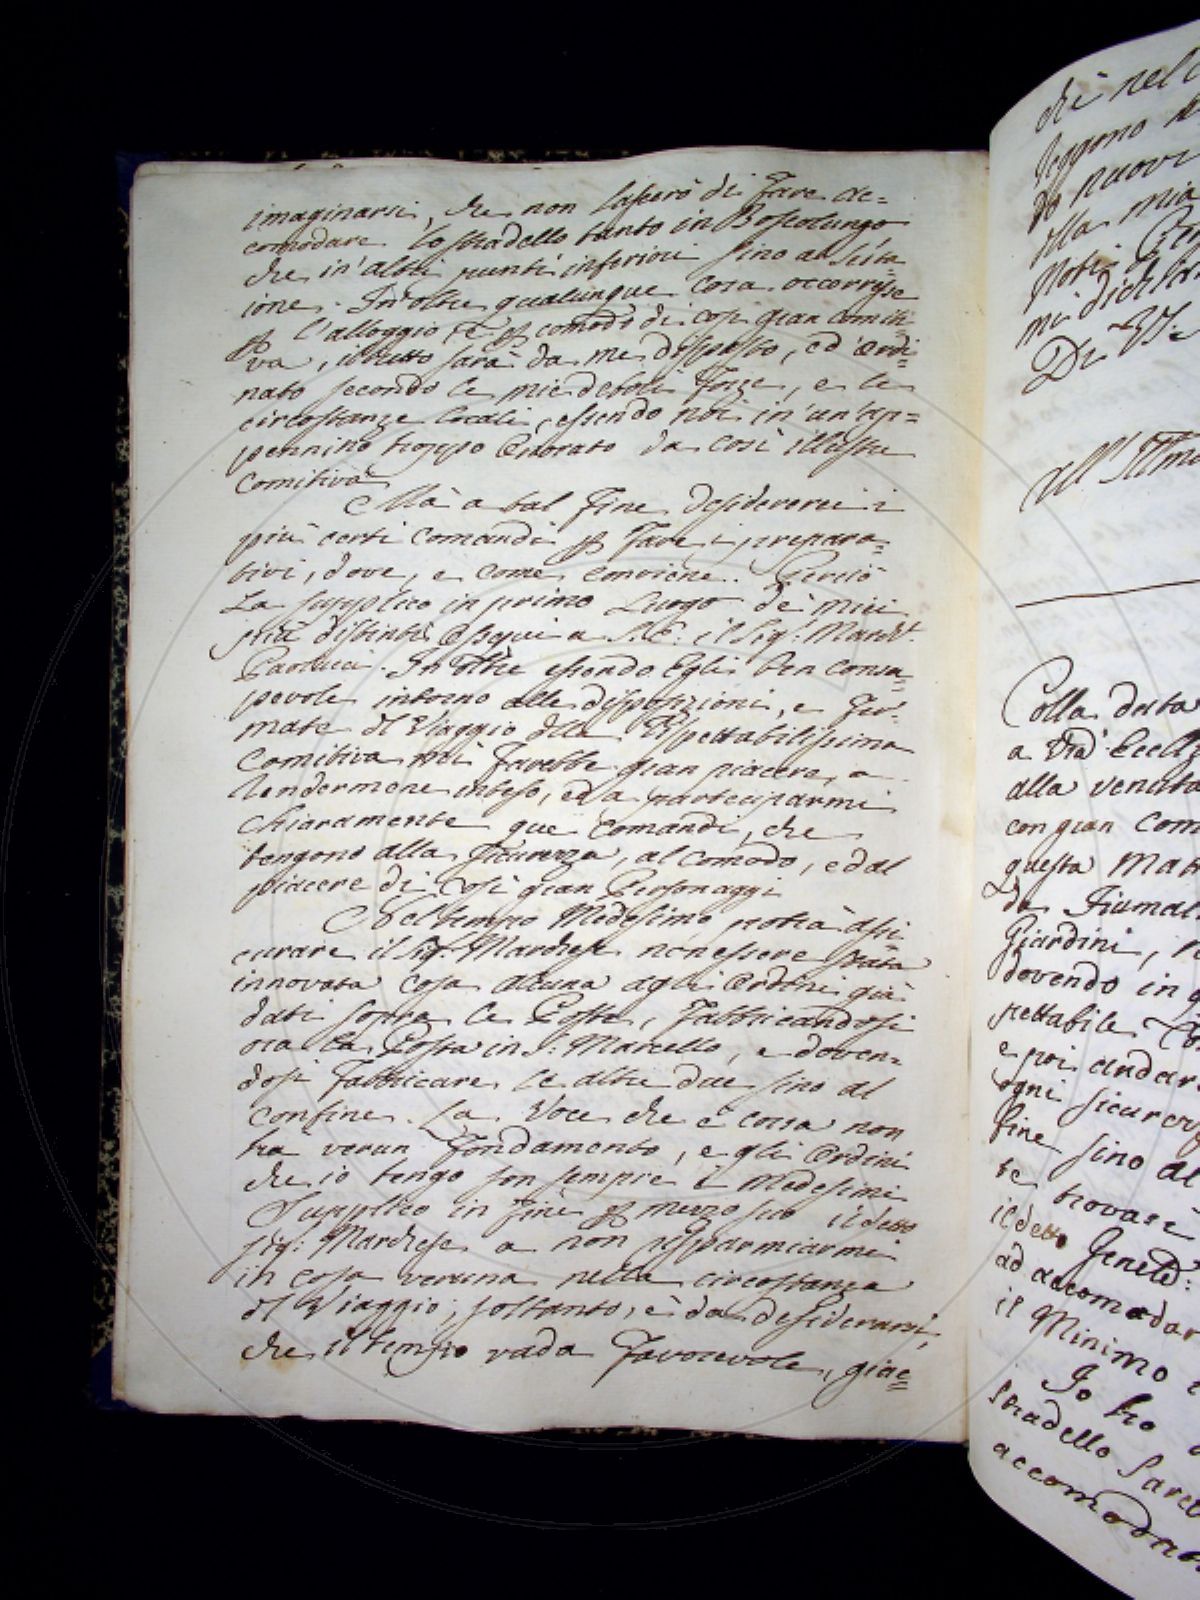 imaginarsi, che non lascerò di fare ac=
comodare lo stradello tanto in Boscolungo
che in'altri punti inferiori sino a
ione. In oltre qualunque cosa occorresse
l'alloggio, e comodo di così gran comiti
va, il tutto sarà da me disposto, ed ordi=
nato secondo le mie deboli forze, e le
circostanze locali, essendo noi in'un'ap=
pennino troppo onorato da così illustre
comitiva
Mà a tal fine desidererei i
più certi comandi fare i prepara=
tivi, dove, e come conviene. Perciò
La supplico in primo Luogo de' miei
più distinti ossequi a S. E. il Sig:
Paolucci. In oltre essendo Egli ben consa=
pevole intorno alle disposizioni, e fer=
mate del Viaggio della Rispettabilissima
Comitiva mi farebbe gran piacere, a
rendermene inteso, ed a parteciparmi
chiaramente que' comandi, che
tengono alla sicurezza, al comodo, ed al
piacere di così gran Personaggi
Nel tempo Medesimo potrà assi
curare il Sig: Marchese non essere stata
innovata cosa alcuna agli ordini già
dati sopra le Poste, fabbricandosi
ora la Posta in S: Marcello, e doven=
dosi fabbricare le altre due sino al
confine. La Voce che è corsa non
hà verun fondamento, e gli ordini
che io tengo son sempre i medesimi
Supplico in fine mezzo suo il detto
Sig: Marchese a non risparmiarmi
in cosa veruna nella circostanza
del Viaggio; soltanto, è da desiderarsi,
che il tempo vada favorevole, giac=
chè nel
leggono
nuovi
alla mia
mi
Di V. S.
All' Illmo
Colla data
a Vra Eccllz
alla venuta
con gran com
questa matt
da Fiumal
Giardini,
dovendo in q
pettabile
e poi andar
ogni sicurezz
fine sino al
te trovasi
il detto
ad accomodar
il Minimo
Io ho
stradello sarà
accomodat